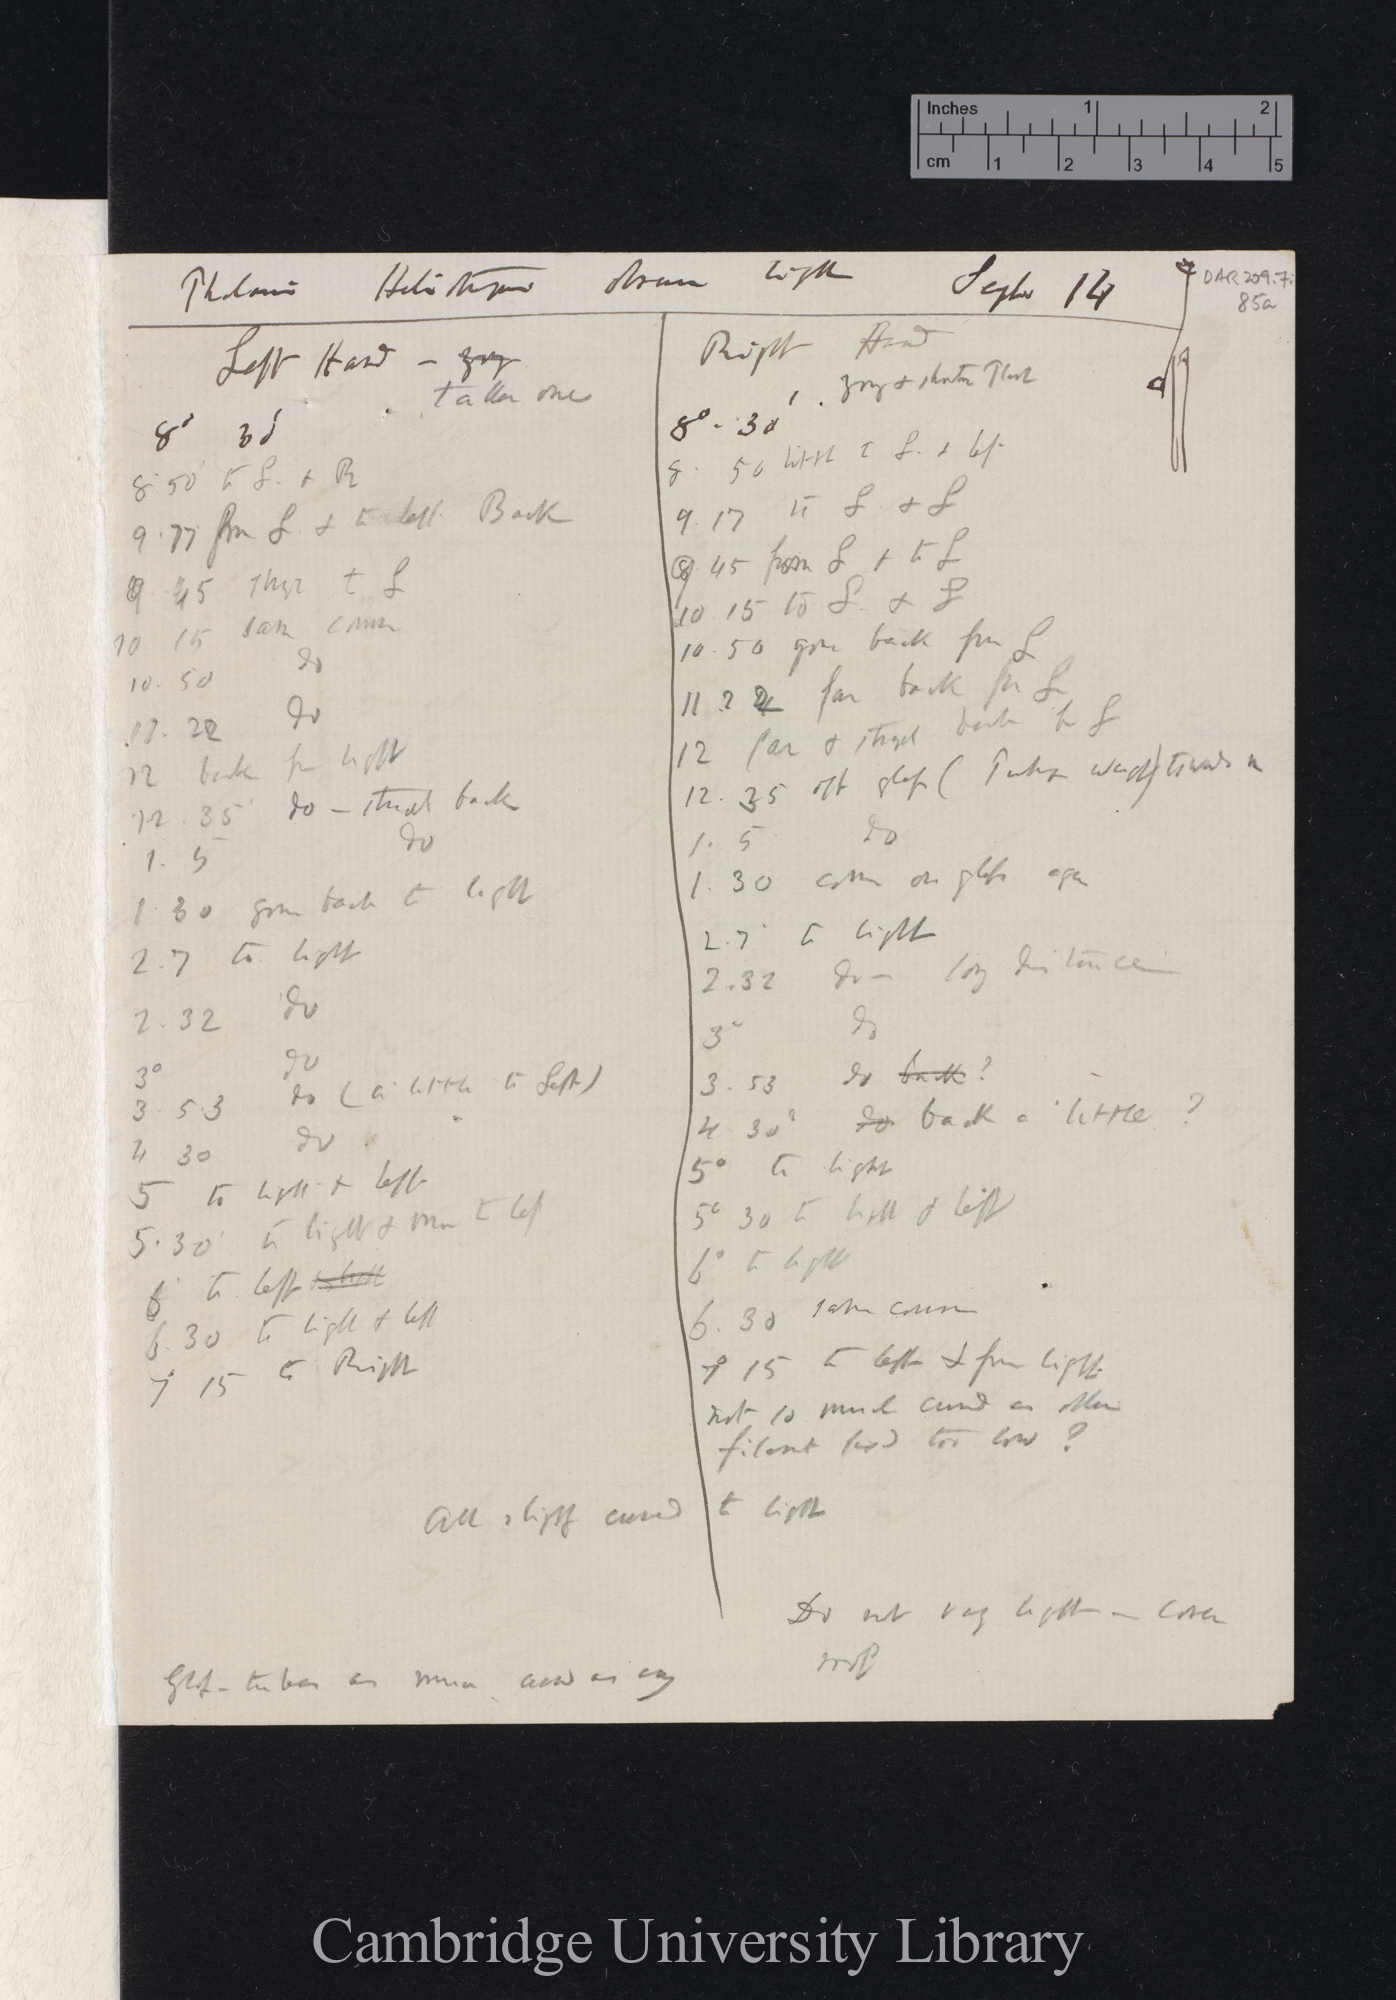 Inches 1 2
cm 1 2 3 4 5
DAR 209.7:
85a
Phalaris Heliotropism obscure light Septr 14
Left Hand –
taller one
8° 30'
8 50' to L. & R
9. 17 from L. & to left Back
9 45 to L
10 15 same course
10. 50 do
11. 22 do
12 back from light
12. 35' do – straight back
1. 5 do
1. 30 gone back to light
2. 7 to light
2. 32 do
3° do
3. 53 do (a little to Left)
4 30 do
5 to light & left
5. 30' to light & more to left
6° to left
6. 30 to light & left
7° 15 to Right
Right Hand
young & shorter Plant
8° - 30'
8. 50 little to L. & left
9. 17 to L & L
9 45 from L & to L
10 15 to L. & L
10. 50 gone back from L
11. 22 far back from L
12 far & straight back from L
12. 35 off glass ( ) towards
1. 5 do
1. 30 come on glass again
2. 7' to light
2. 32 do – long distance
3° do
3. 53 do back?
4 30' do back a little ?
5° to light
5° 30 to light & left
6° to light
6. 30 same course
7° 15 to left & from light
not so much curved as other
filament fixed too low ?
All slightly curved to light
Do not vary light – cover
roof
Glass-tubes as much curved as any
Cambridge University Library